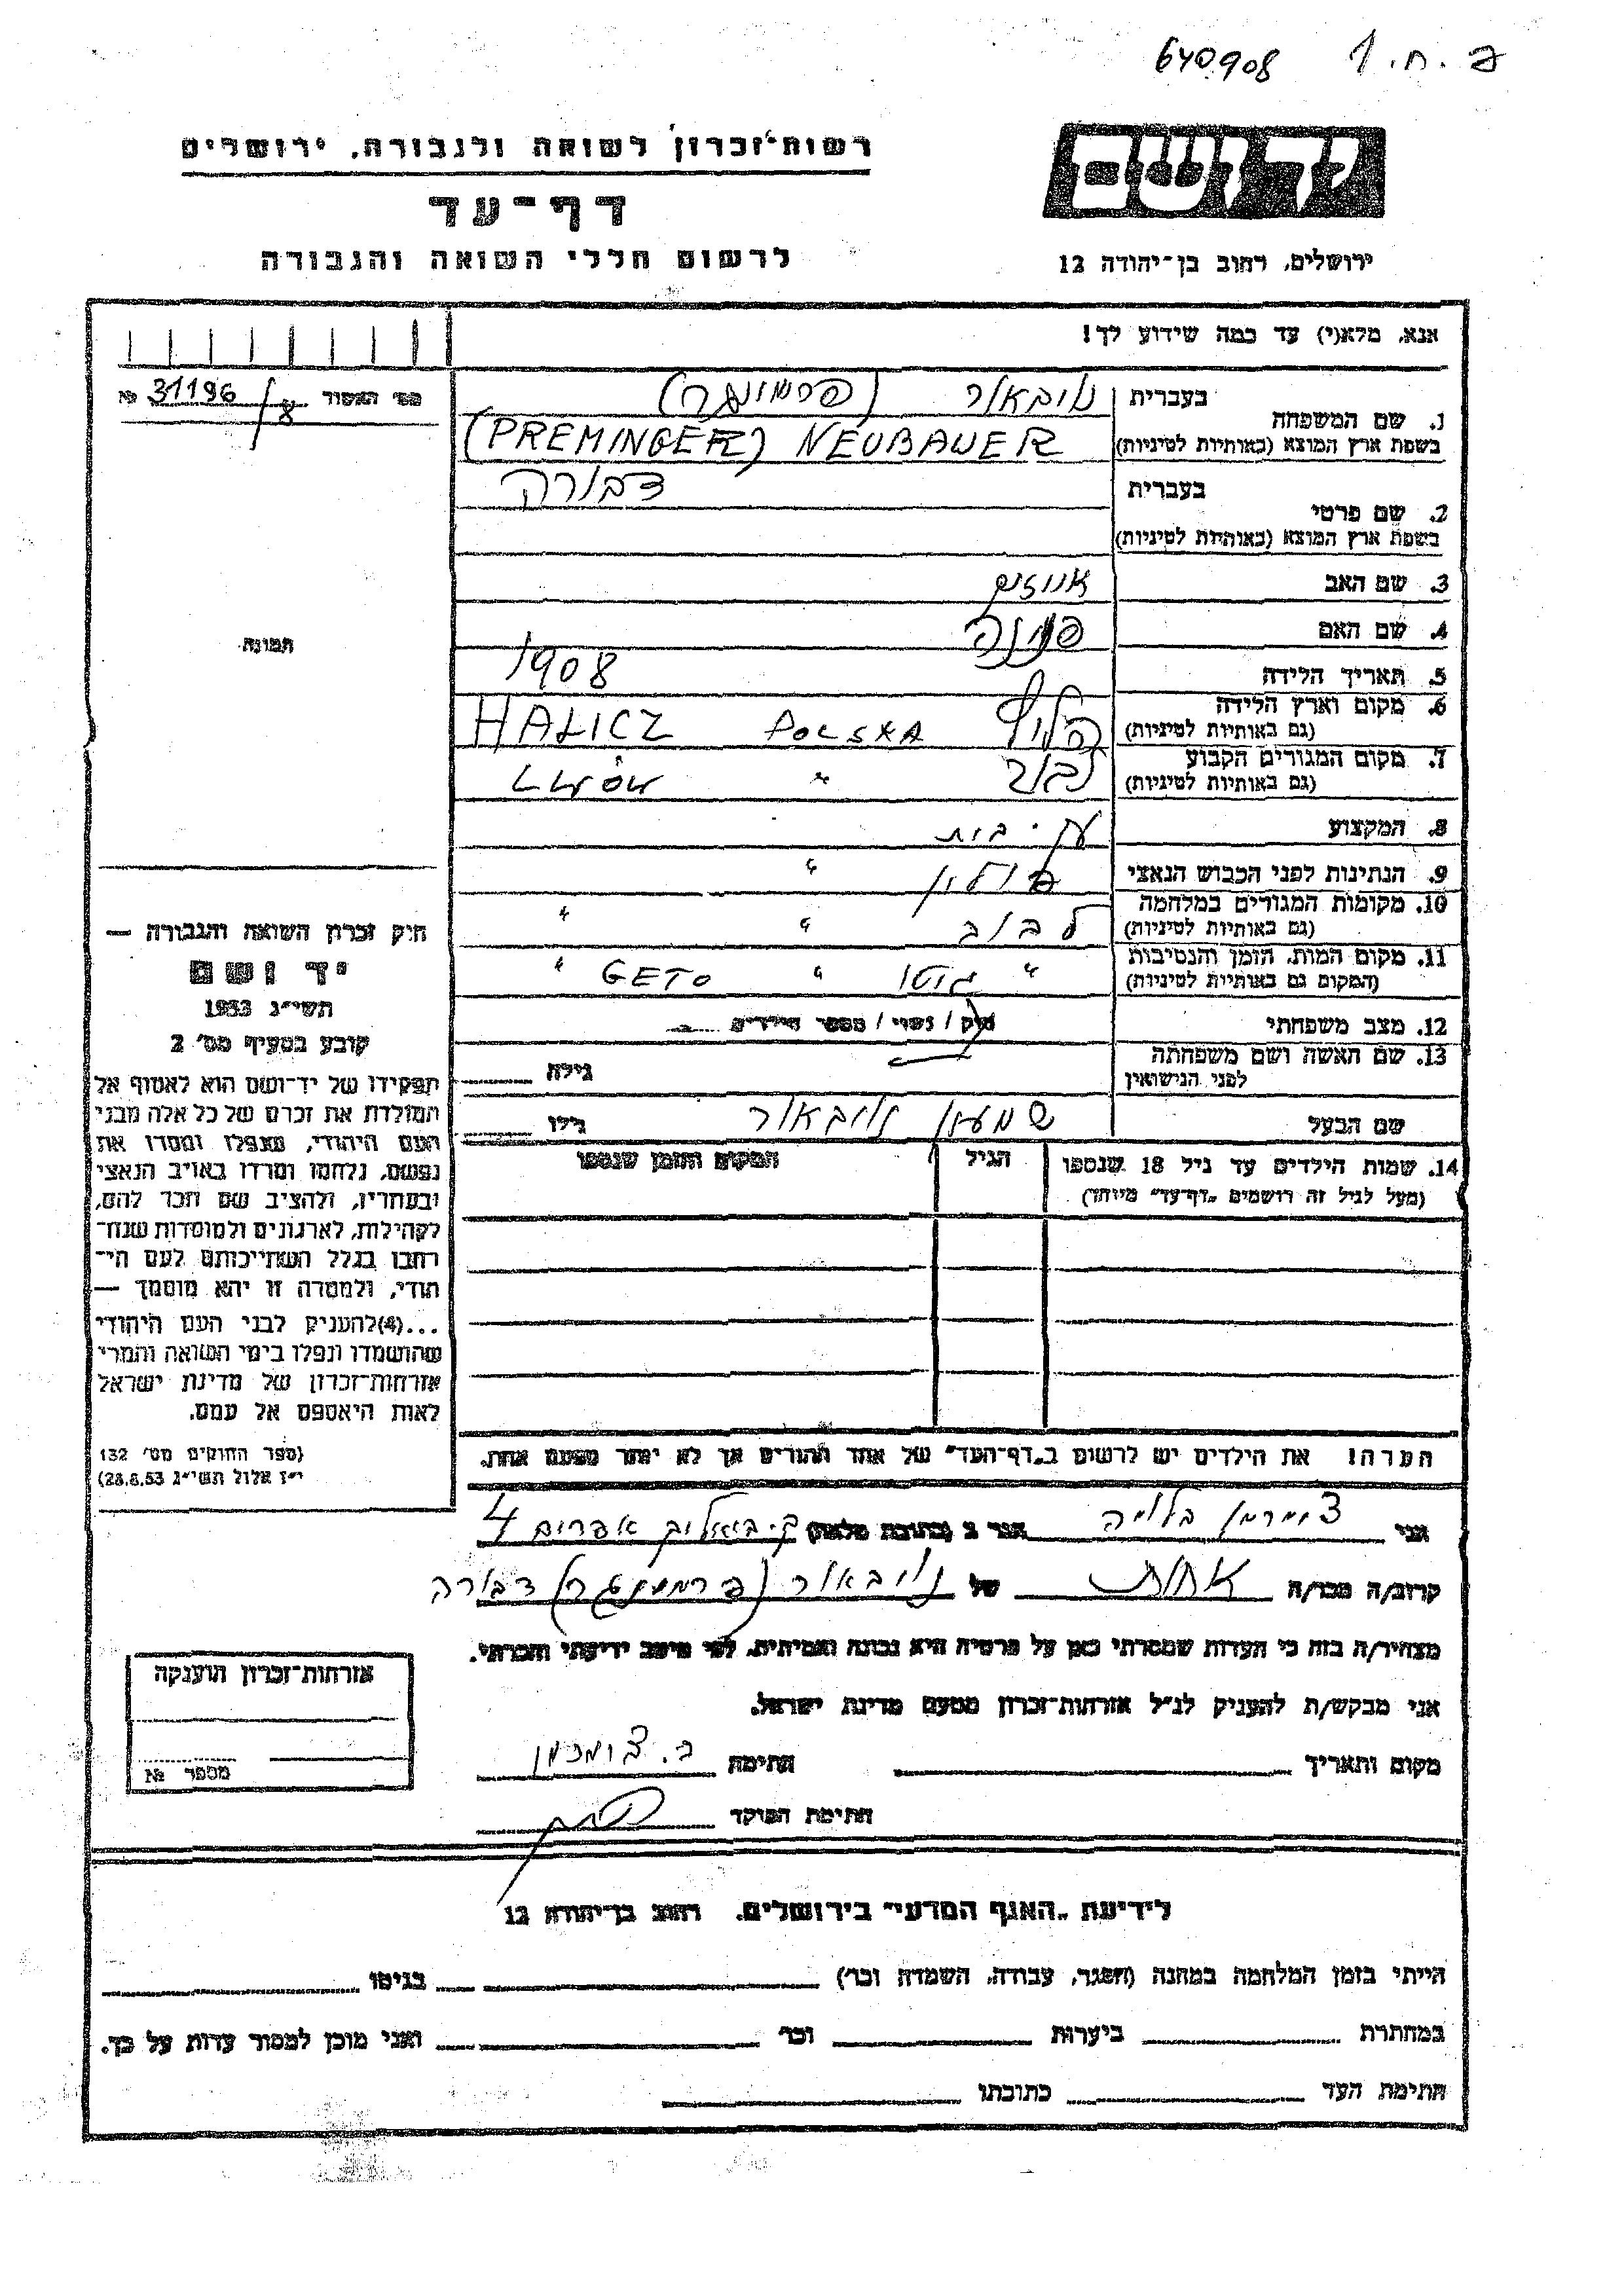 640908 פ.ח.1
יד ושם
רשות־זכרון לשואה ולגבורה, ירושלים
דף־עד
לרשום חללי השואה והגבורה
ירושלים, רחוב בן־יהודה 12
אנא, מלא(י) עד כמה שידוע לך!
מס׳ האסור 31196 №
1. שם המשפחה
בעברית נויבאור (פרמינגר)
בשפת ארץ המוצא (באותיות לטיניות) (PREMINGER) NEUBAUER
2. שם פרטי
בעברית דבורה
בשפת ארץ המוצא (באותיות לטיניות)
3. שם האב
4. שם האם
5. תאריך הלידה 1908
6. מקום וארץ הלידה
(גם באותיות לטיניות) POLSKA HALICZ
7. מקום המגורים הקבוע
(גם באותיות לטיניות) לבוב " LWÓW
8. המקצוע עק. בית
9. הנתינות לפני הכבוש הנאצי פולין "
10. מקומות המגורים במלחמה
(גם באותיות לטיניות) לבוב " "
11. מקום המות, הזמן והנסיבות
(המקום גם באותיות לטיניות) " גיטו " GETO "
12. מצב משפחתי רוק / נשוי / מספר הילדים
13. שם האשה ושם משפחתה
לפני הנישואין
גילה
שם הבעל שמעון נויבאור גילו
14. שמות הילדים עד גיל 18 שנספו
(מעל לגיל זה רושמים „דף־עד" מיוחד)
הגיל
המקום והזמן שנספו
הערה! את הילדים יש לרשום ב„דף־העד" של אחד ההורים אך לא יותר מפעם אחת.
תמונה
חוק זכרון השואה והגבורה —
יד ושם
תשי״ג 1953
קובע בסעיף מס׳ 2
תפקידו של יד־ושם הוא לאסוף אל
המולדת את זכרם של כל אלה מבני
העם היהודי, שנפלו ומסרו את
נפשם, נלחמו ומרדו באויב הנאצי
ובעוזריו, ולהציב שם וזכר להם,
לקהילות, לארגונים ולמוסדות שנח־
רבו בגלל השתייכותם לעם הי־
הודי, ולמטרה זו יהא מוסמך —
...(4)להעניק לבני העם היהודי
שהושמדו ונפלו בימי השואה והמרי
אזרחות־זכרון של מדינת ישראל
לאות היאספם אל עמם.
(ספר החוקים מס׳ 132
י״ז אלול תשי״ג 28.8.53)
אני צימרמן בלומה הגר ב (כתובת מלאה) ק. ביאליק אפרים 4
קרוב/ה מכר/ה אחות של נויבאור (פרמינגר) דבורה
מצהיר/ה בזה כי העדות שמסרתי כאן על פרטיה היא נכונה ואמיתית, לפי מיטב ידיעתי והכרתי.
אני מבקש/ת להעניק לנ״ל אזרחות־זכרון מטעם מדינת ישראל.
מקום ותאריך חתימה
חתימת הפוקד
אזרחות־זכרון הוענקה
מספר №
לידיעת „האגף המדעי" בירושלים, רחוב בן־יהודה 12
הייתי בזמן המלחמה במחנה (הסגר, עבודה, השמדה וכו׳) בגיטו
במחתרת ביערות וכו׳ ואני מוכן למסור עדות על כך.
חתימת העד כתובתו